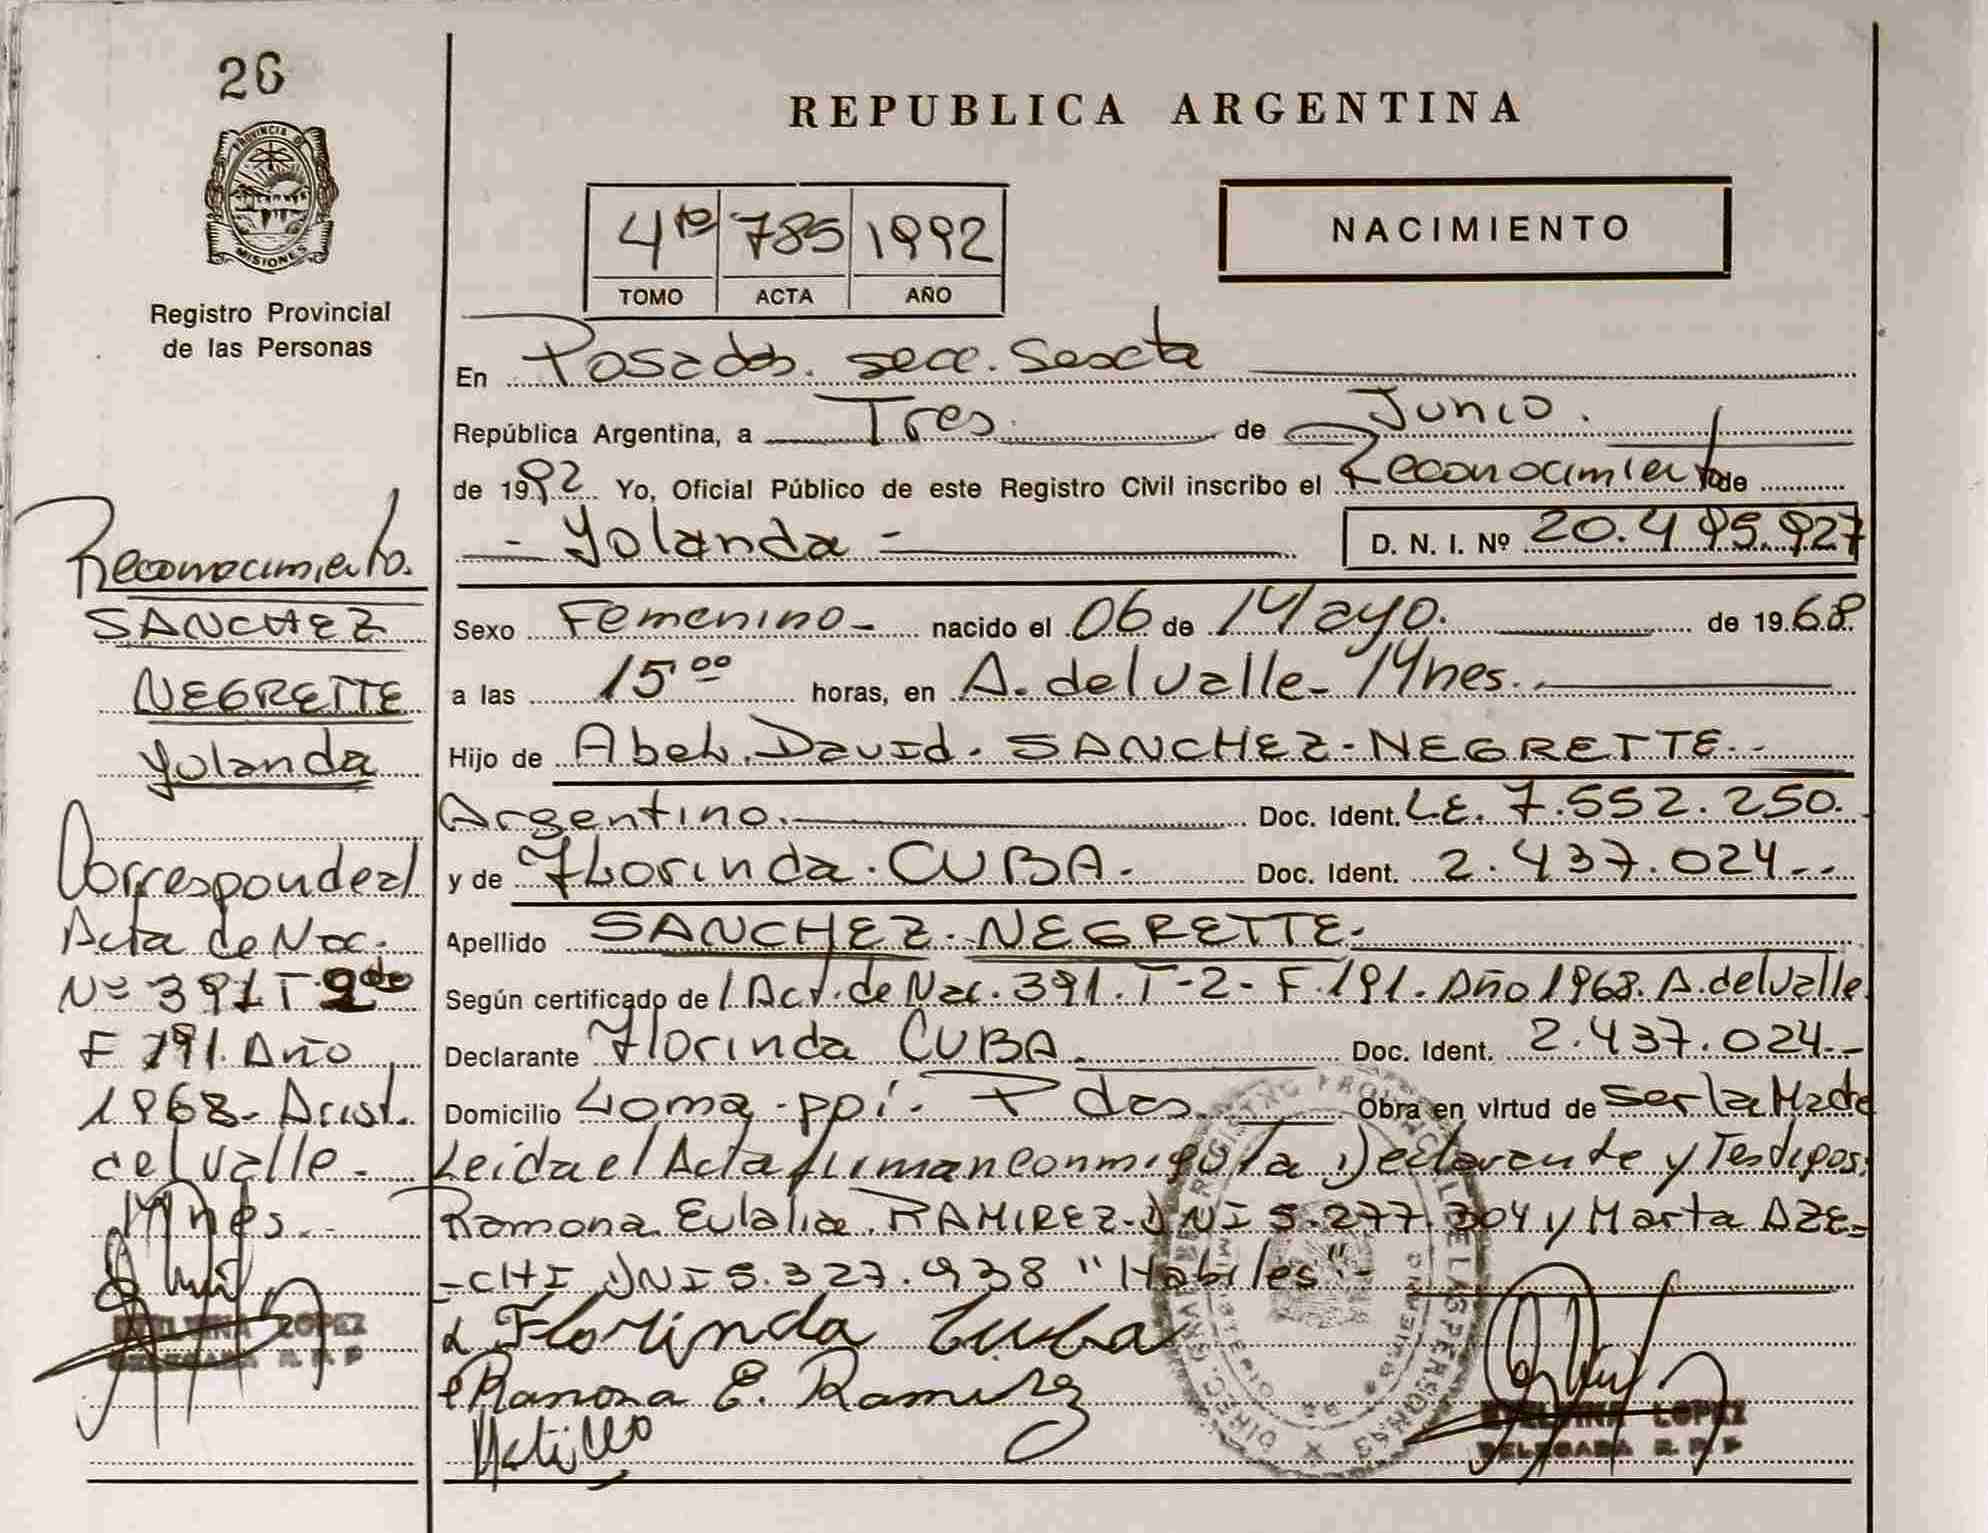 26
PROVINCIA DE
MISIONES
Registro Provincial
de las Personas
Reconocimiento.
SANCHEZ
NEGRETTE
Yolanda
Corresponde al
Acta de Nac.
Nº 391 T 2do
F 191. Año
1968 - Arist.
del Valle -
Mnes. -
LOPEZ
DELEGADA R. P. P
REPUBLICA ARGENTINA
4to 785 1992
TOMO ACTA AÑO
NACIMIENTO
En Posadas. secc. Sexta
República Argentina, a Tres de Junio.
de 1992 Yo, Oficial Público de este Registro Civil inscribo el Reconocimiento de
- Yolanda - D. N. I. Nº 20.495.927
Sexo Femenino - nacido el 06 de Mayo. de 1968
a las 15 00 horas, en A. del Valle - Mnes.
Hijo de Abel. David. SANCHEZ - NEGRETTE -
Argentino. Doc. Ident. L.E. 7.552.250.
y de Florinda. CUBA. Doc. Ident. 2.437.024 --
Apellido SANCHEZ - NEGRETTE -
Según certificado de Act. de Nac. 391. T-2 - F. 191. Año 1968. A. del Valle
Declarante Florinda CUBA. Doc. Ident. 2.437.024 --
Domicilio Loma ppi. Pdas. Obra en virtud de Ser la Madre
Leida el Acta firman conmigo la Declarante y Testigos:
Ramona Eulalia RAMIREZ - DNI 5.277.304 y Marta AZE-
-CHI DNI 5.327.938 "Habiles" -
Florinda Cuba
Ramona E. Ramirez
LOPEZ
DELEGADA R. P. P